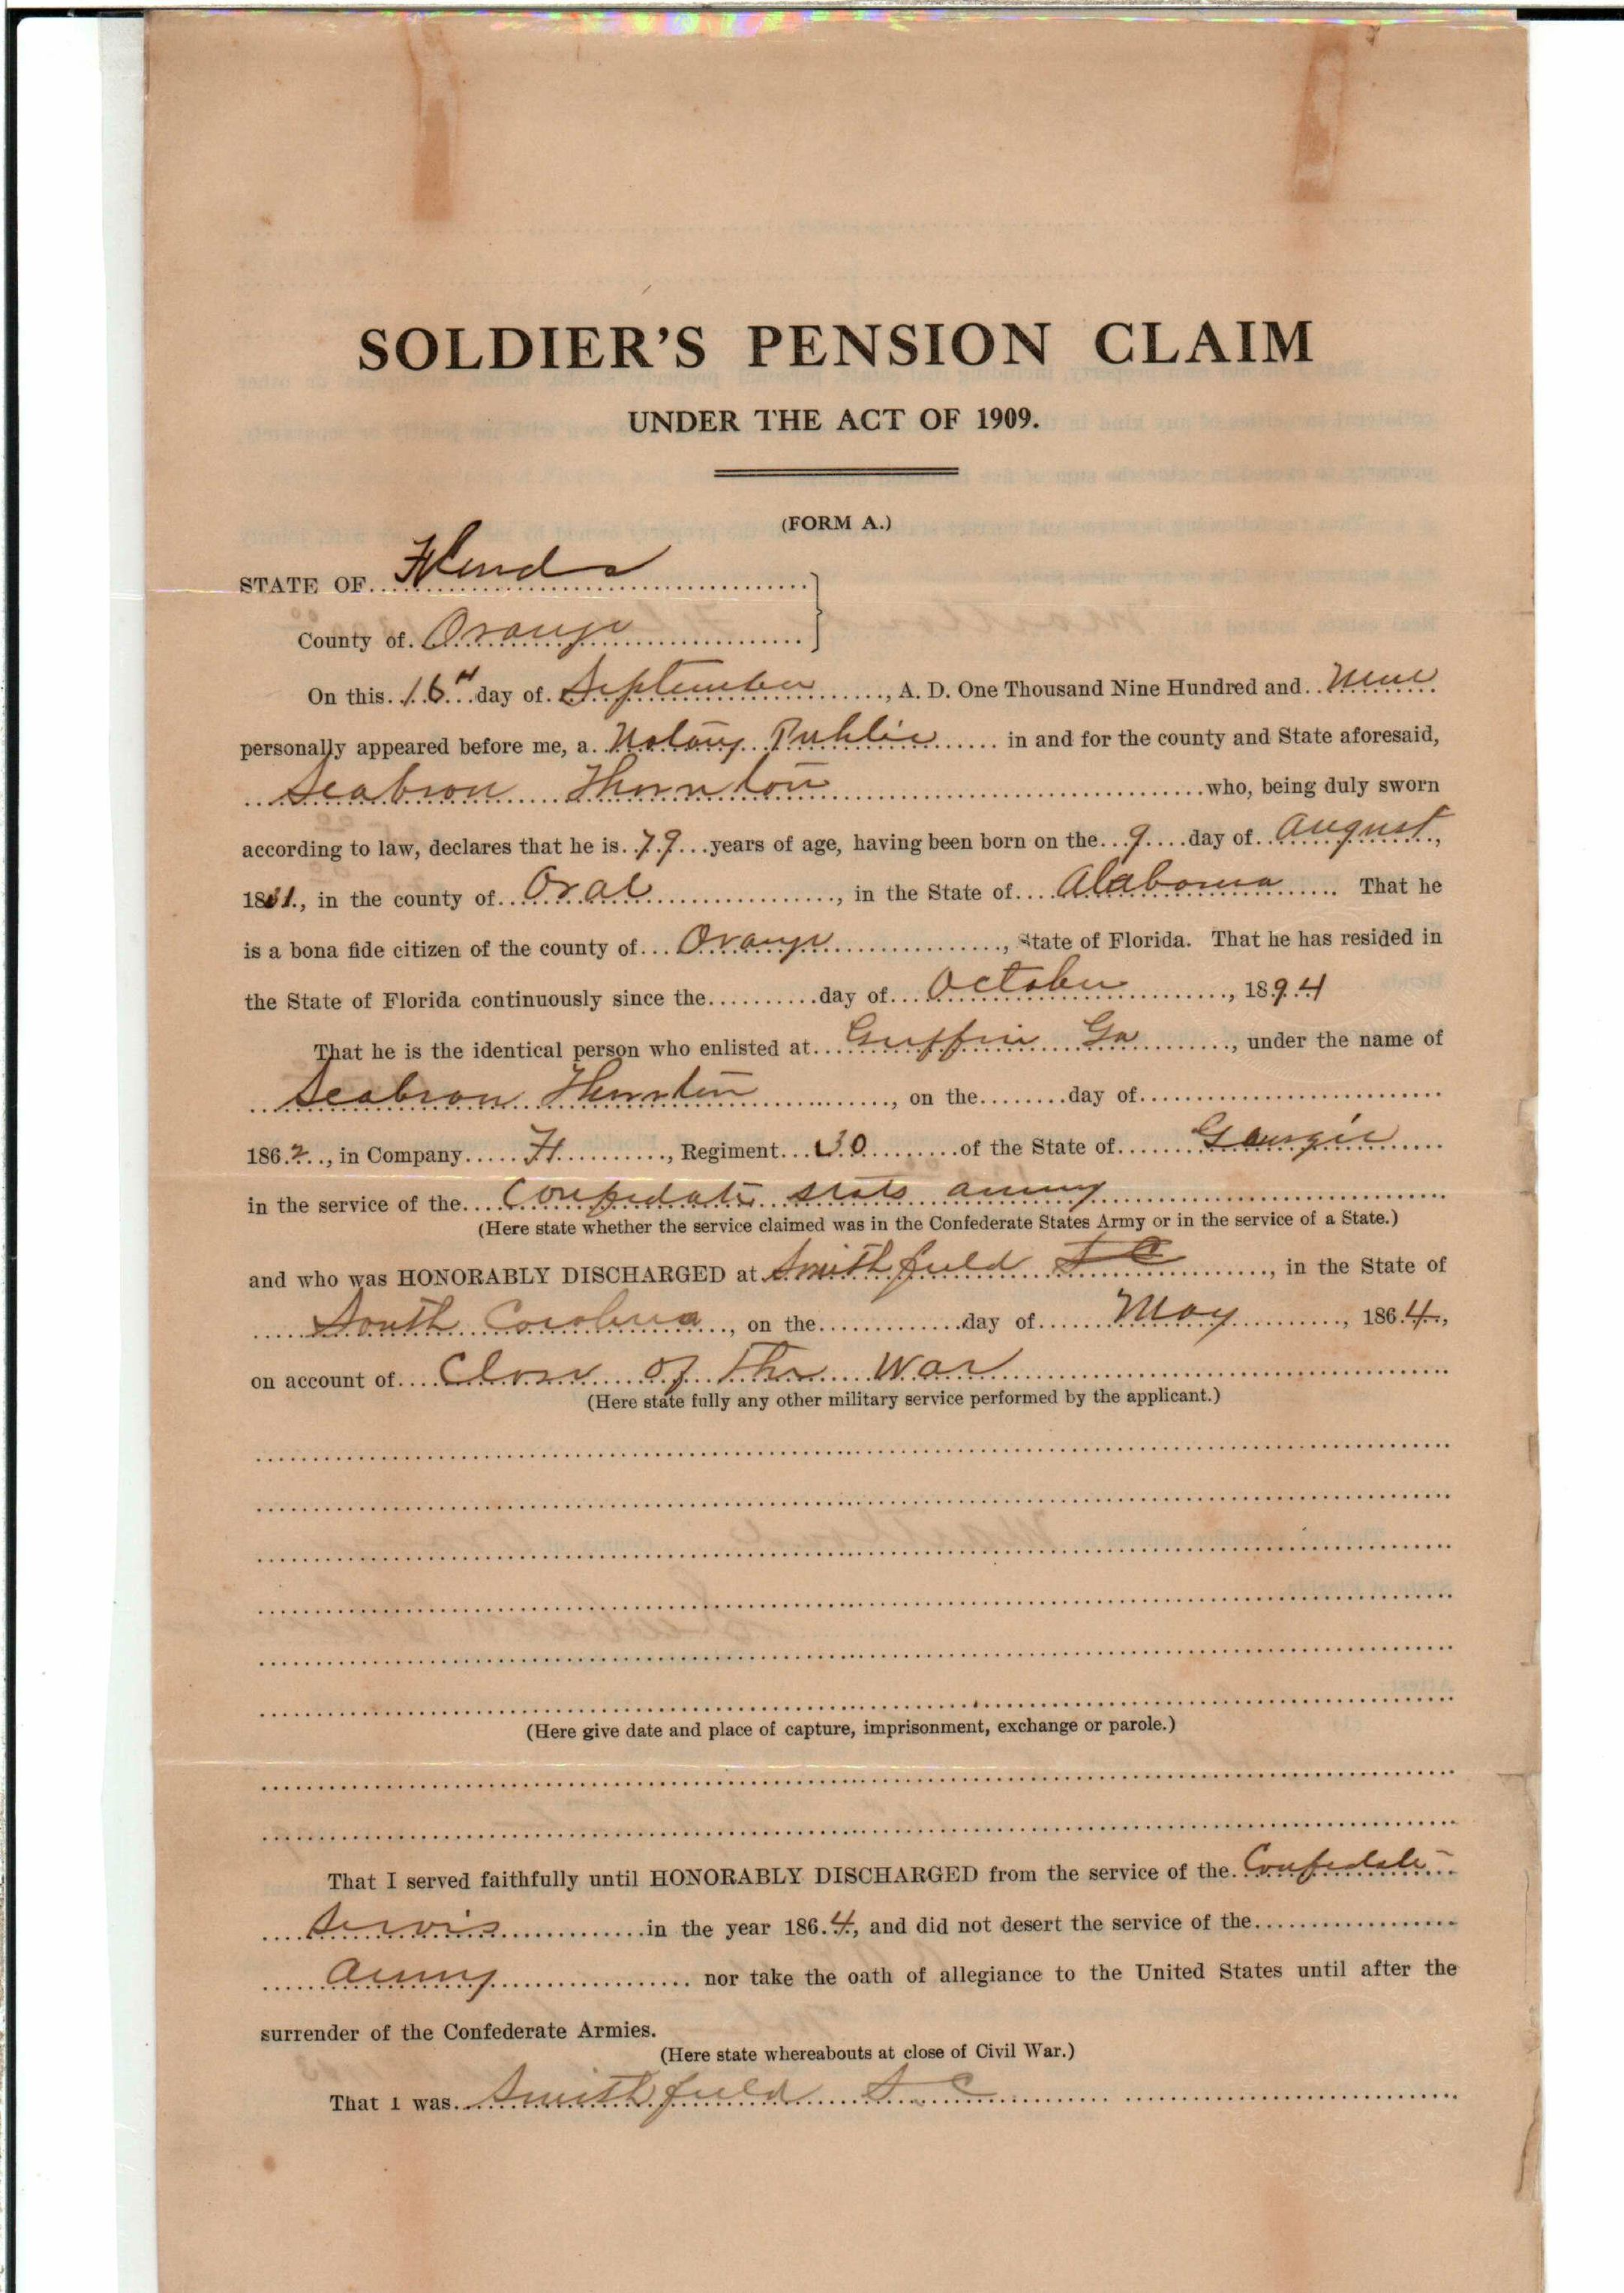 SOLDIER'S PENSION CLAIM
UNDER THE ACT OF 1909.
(FORM A.)
STATE OF Florida
County of Orange
On this 16th day of September, A. D. One Thousand Nine Hundred and Nine
personally appeared before me, a Notary Public in and for the county and State aforesaid,
Seabron Thornton who, being duly sworn
according to law, declares that he is 79 years of age, having been born on the 9 day of August,
18 1, in the county of Oral, in the State of Alaboma That he
is a bona fide citizen of the county of Orange, State of Florida. That he has resided in
the State of Florida continuously since the day of October, 1894
That he is the identical person who enlisted at Griffin Ga, under the name of
Seabron Thornton, on the day of
1862, in Company H, Regiment 30 of the State of Georgia
in the service of the Confedate stats army
(Here state whether the service claimed was in the Confederate States Army or in the service of a State.)
and who was HONORABLY DISCHARGED at Smithfield S C, in the State of
South Carolina, on the day of May, 1864,
on account of Close of The War
(Here state fully any other military service performed by the applicant.)
(Here give date and place of capture, imprisonment, exchange or parole.)
That I served faithfully until HONORABLY DISCHARGED from the service of the Confedate
Servis in the year 1864, and did not desert the service of the
army nor take the oath of allegiance to the United States until after the
surrender of the Confederate Armies.
(Here state whereabouts at close of Civil War.)
That I was Smithfield S C